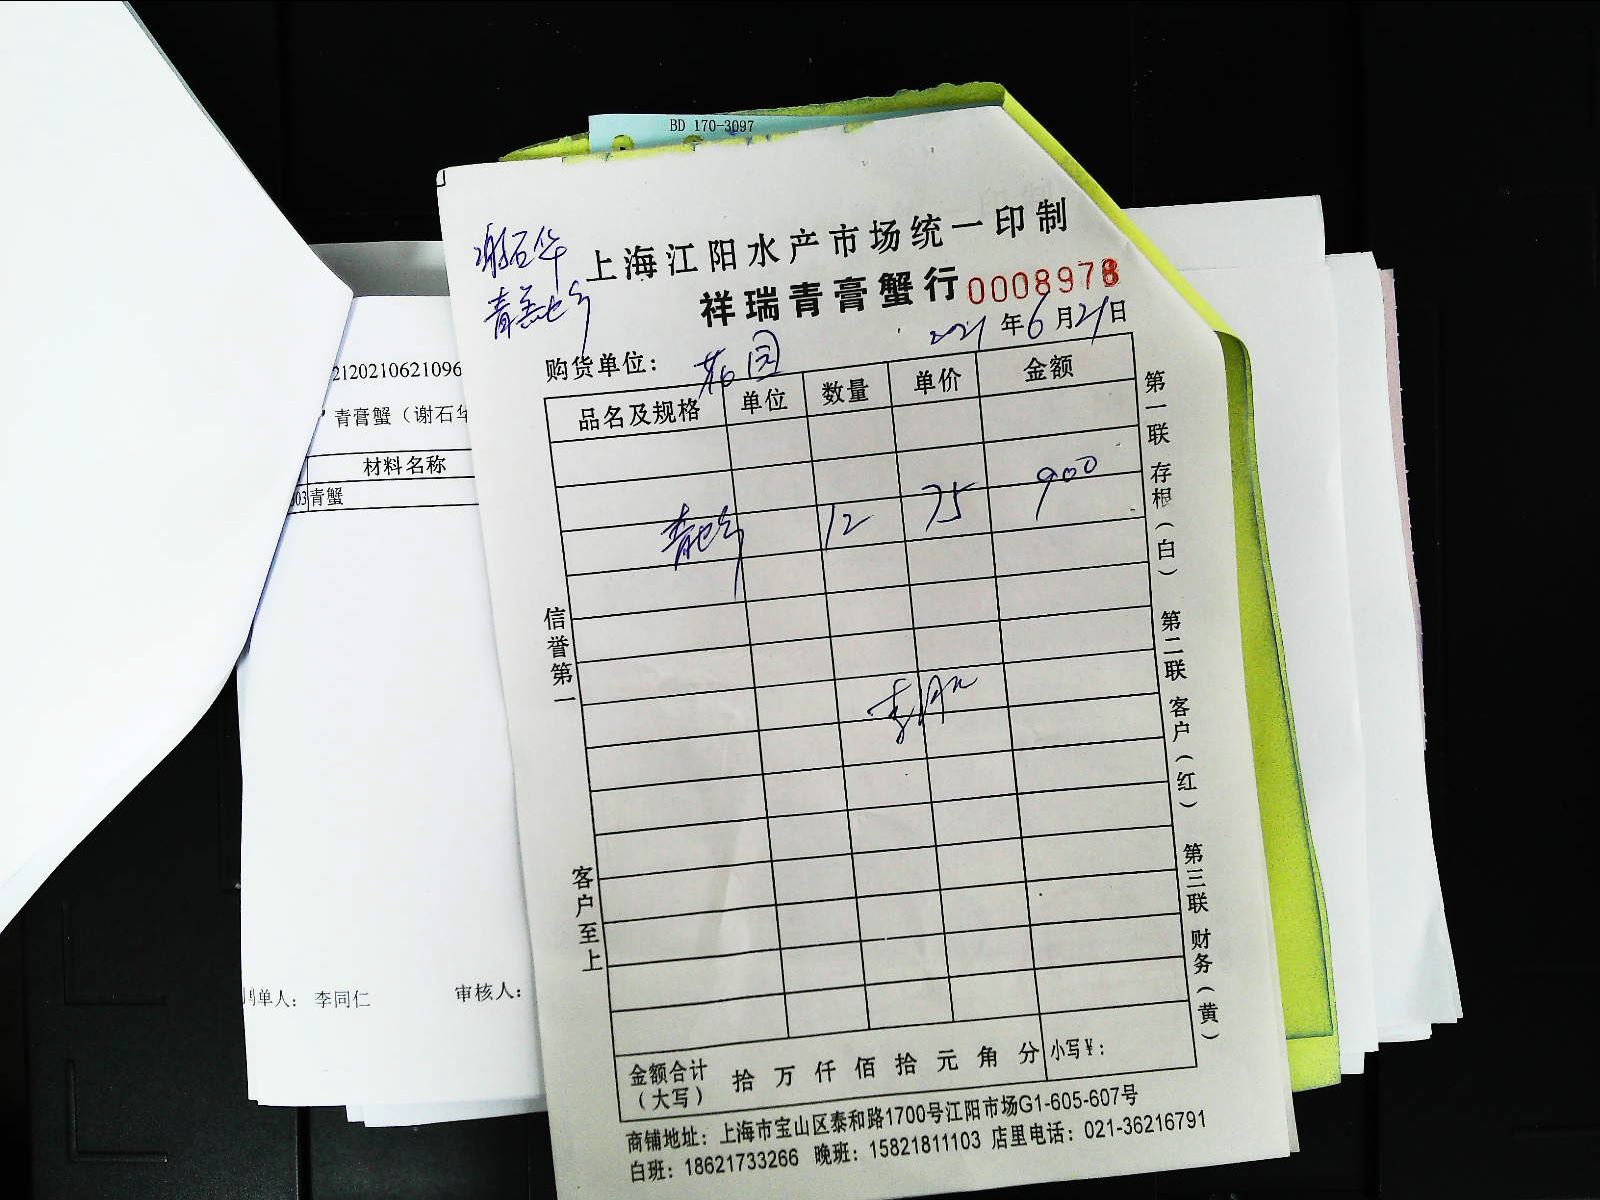 BD 170-3097
谢石华
上海江阳水产市场统一印制
祥瑞青膏蟹行 0008978
2021年6月21日
购货单位： 花园
品名及规格 单位 数量 单价 金额
12 75 900
信誉第一
客户至上
第一联 存根（白） 第二联 客户（红） 第三联 财务（黄）
金额合计（大写） 拾 万 仟 佰 拾 元 角 分 小写￥：
商铺地址：上海市宝山区泰和路1700号江阳市场G1-605-607号
白班：18621733266 晚班：15821811103 店里电话：021-36216791
2120210621096
青膏蟹（谢石华
材料名称
03 青蟹
单人： 李同仁 审核人：